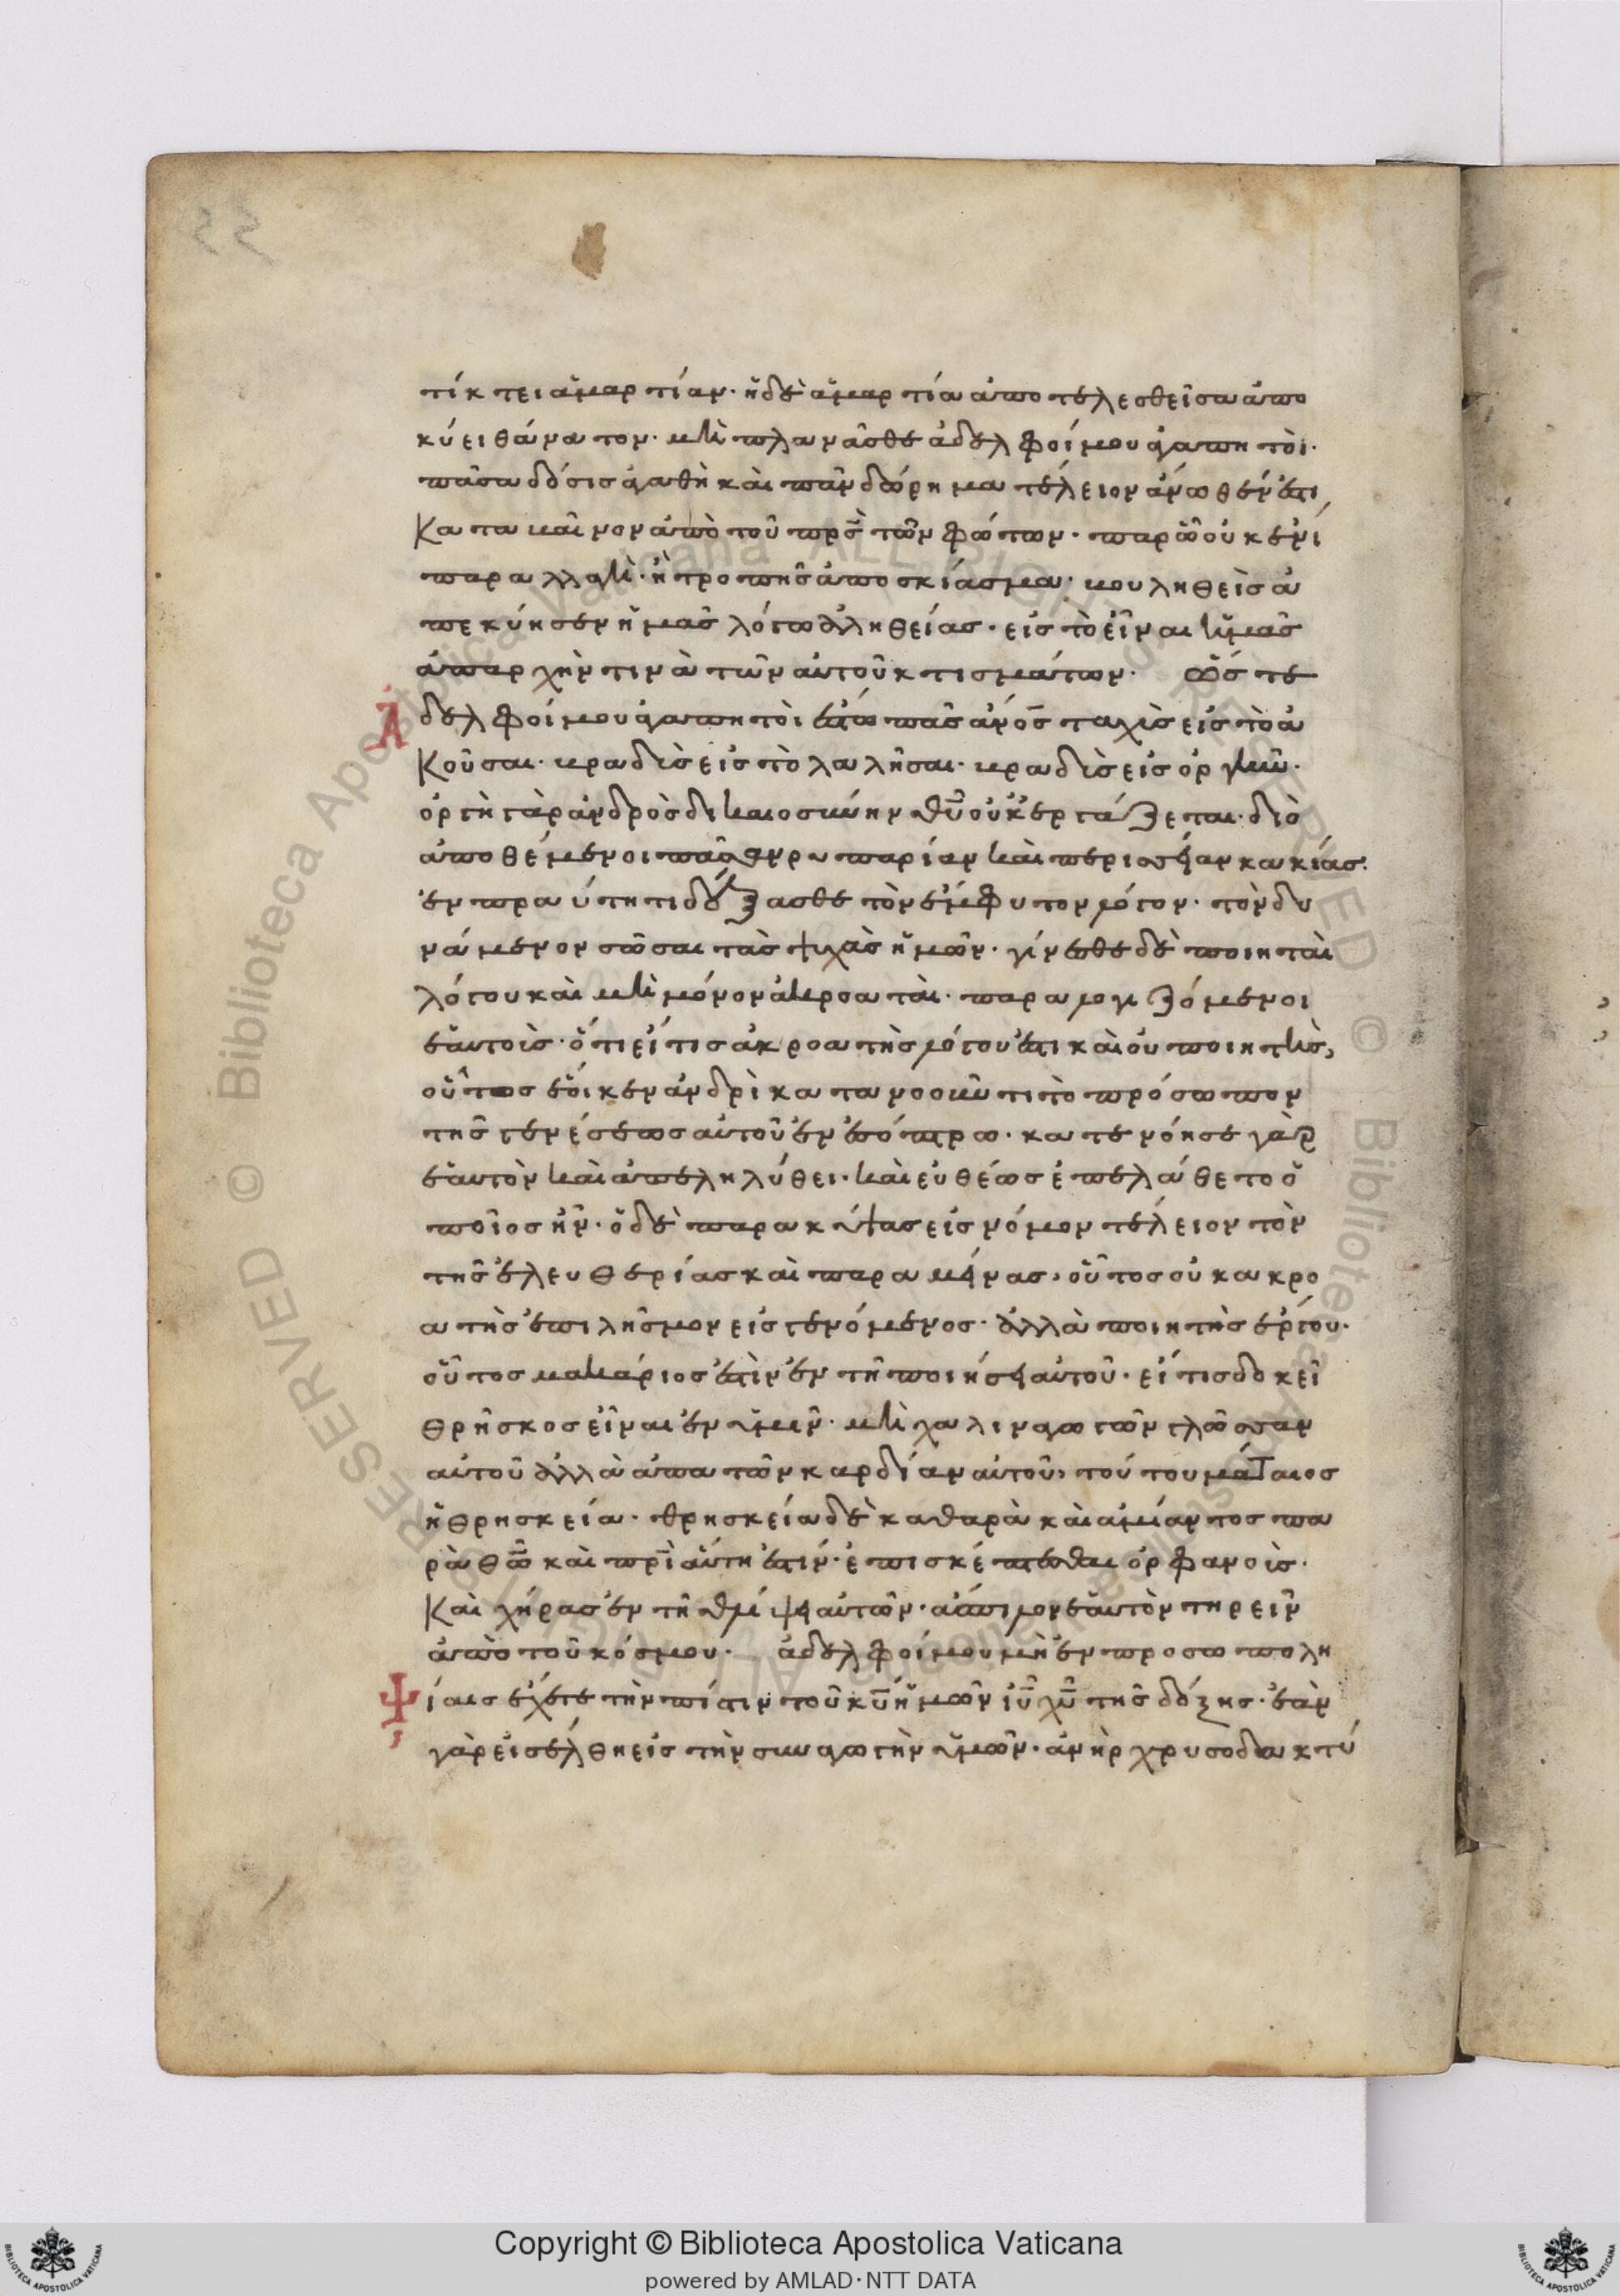 τίκτει ἁμαρτίαν· ἡ δὲ ἁμαρτία ἀποτελεσθεῖσα ἀπο
κύει θάνατον· μὴ πλανᾶσθε ἀδελφοί μου ἀγαπητοὶ·
πᾶσα δόσις ἀγαθὴ καὶ πᾶν δώρημα τέλειον ἄνωθέν ἐστι
καταμαῖνον ἀπὸ τοῦ πρ̅ς̅ τῶν φώτων· παρ ὧ οὐκ ἔνι
παραλλαγὴ· ἢ τροπῆς ἀποσκίασμα· βουληθεὶς ἀ
πεκύησεν ἡμᾶς λόγω ἀληθείας· εἰς τὸ εἶναι ἡμᾶς
ἀπαρχήν τινὰ τῶν αὐτοῦ κτισμάτων· ὥστε
ἀδελφοί μου ἀγαπητοὶ ἔστω πᾶς ἄν̅ο̅ς̅ ταχὺς εἰς τὸ ἀ
κοῦσαι· βραδὺς εἰς τὸ λαλῆσαι· βραδὺς εἰς ὀργὴν·
ὀργὴ γὰρ ἀνδρὸς δικαιοσύνην θ̅υ̅ οὐκ ἐργάζεται· διὸ
ἀποθέμενοι πᾶσαν ρυπαρίαν καὶ περισσείαν κακίας·
ἐν πραύτητι δέξασθε τὸν ἔμφυτον λόγον· τὸν δυ
νάμενον σῶσαι τὰς ψυχὰς ἡμῶν· γίνεσθε δὲ ποιηταὶ
λόγου καὶ μὴ μόνον ἀκροαταὶ· παραλογιζόμενοι
ἑαυτοὺς· ὅτι εἴ τις ἀκροατὴς λόγου ἐστι καὶ οὐ ποιητὴς,
οὗτος ἔοικεν ἀνδρὶ κατανοοῦντι τὸ πρόσωπον
τῆς γενέσεως αὐτοῦ ἐν ἐσόπτρω· κατενόησε γὰρ
ἑαυτὸν καὶ ἀπεληλύθει· καὶ εὐθέως ἐπελάθετο ὁ
ποῖος ἦν· ὁ δὲ παρακύψας εἰς νόμον τέλειον τὸν
τῆς ἐλευθερίας καὶ παραμείνας, οὗτος οὐκ ἀκρο
ατὴς ἐπιλησμονεὶς γενόμενος· ἀλλὰ ποιητὴς ἔργου·
οὗτος μακάριος ἐστὶν ἐν τῆ ποιήσει αὐτοῦ· εἴ τις δοκεῖ
θρῆσκος εἶναι ἐν ὑμῖν· μὴ χαλιναγωγῶν γλῶσσαν
αὐτοῦ ἀλλὰ ἀπατῶν καρδίαν αὐτοῦ, τούτου μάταιος
ἡ θρησκεία· θρησκεία δὲ καθαρὰ καὶ ἀμίαντος πα
ρὰ θ̅ω̅ καὶ πρ̅ὶ αὕτη ἐστιν· ἐπισκέπτεσθαι ὀρφανοὺς·
καὶ χήρας ἐν τῆ θλίψει αὐτῶν· ἄσπιλον ἑαυτὸν τηρεῖν
ἀπὸ τοῦ κόσμου· ἀδελφοί μου μὴ ἐν προσωπολη
ψίαις ἔχετε τὴν πίστιν τοῦ κ̅υ̅ ἡμῶν ἰ̅υ̅ χ̅υ̅ τῆς δόξης· ἐὰν
γὰρ εἰσέλθη εἰς τὴν συναγωγὴν ὑμῶν· ἀνὴρ χρυσοδακτύ
Copyright © Biblioteca Apostolica Vaticana
powered by AMLAD·NTT DATA